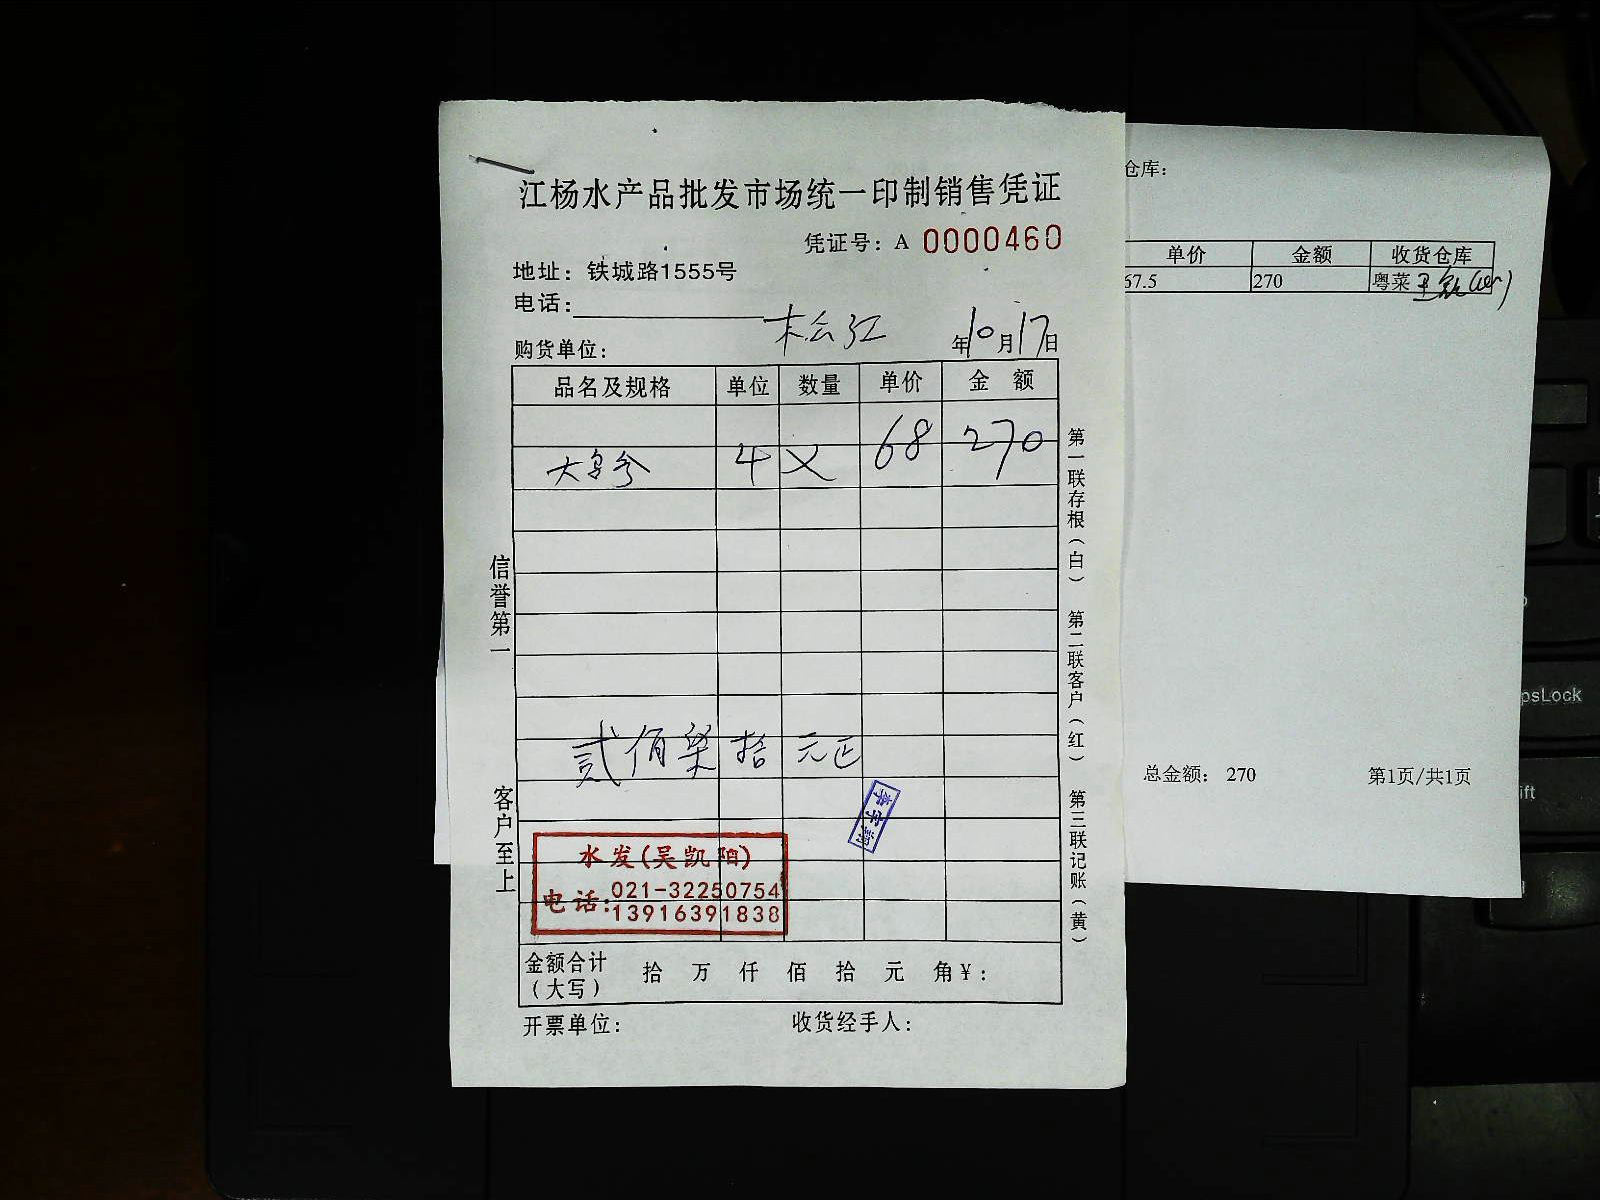 江杨水产品批发市场统一印制销售凭证
凭证号：A 0000460
地址：铁城路1555号
电话：
松江
年10月17日
购货单位：
品名及规格 单位 数量 单价 金 额
大 4 68 270
贰佰柒拾元正
水发(吴凯阳)
电话：021-32250754
13916391838
金额合计（大写） 拾 万 仟 佰 拾 元 角￥：
开票单位： 收货经手人：
信誉第一
客户至上
第一联存根（白） 第二联客户（红） 第三联记账（黄）
仓库：
单价 金额 收货仓库
67.5 270 粤菜
总金额： 270 第1页/共1页
psLock
ift